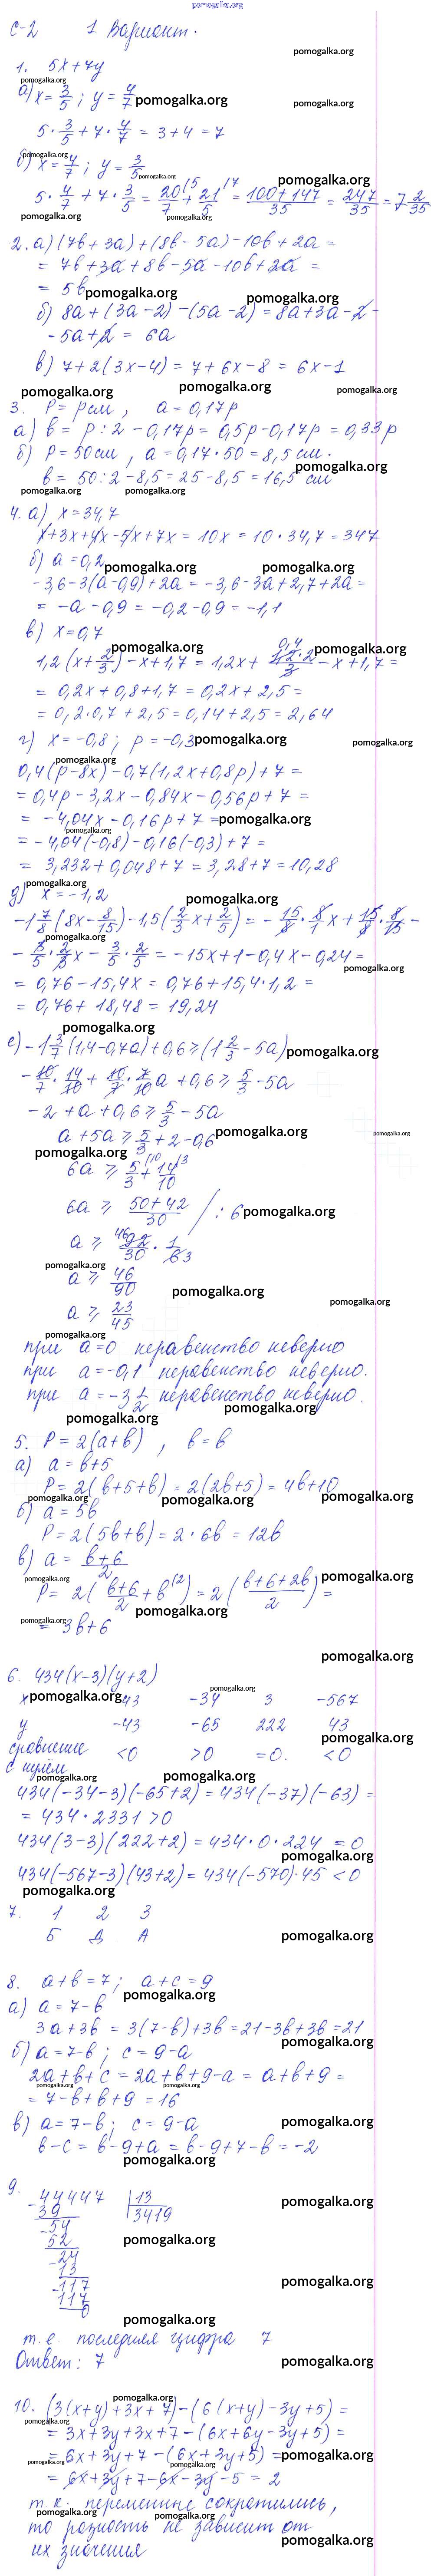 pomogalka.org
С-2 1 Вариант.
1. 5x+7y
а) x=3/5; y=4/7
5·3/5+7·4/7=3+4=7
б) x=4/7; y=3/5
5·4/7+7·3/5=20/7+21/5=(100+147)/35=247/35=7 2/35
2. а) (7b+3a)+(8b-5a)-10b+2a=
=7b+3a+8b-5a-10b+2a=
=5b
б) 8a+(3a-2)-(5a-2)=8a+3a-2-
-5a+2=6a
в) 7+2(3x-4)=7+6x-8=6x-1
3. P=pсм, a=0,17p
а) b=p:2-0,17p=0,5p-0,17p=0,33p
б) P=50см, a=0,17·50=8,5см.
b=50:2-8,5=25-8,5=16,5 см
4. а) x=34,7
x+3x+4x-5x+7x=10x=10·34,7=347
б) a=0,2
-3,6-3(a-0,9)+2a=-3,6-3a+2,7+2a=
=-a-0,9=-0,2-0,9=-1,1
в) x=0,7
1,2(x+2/3)-x+1,7=1,2x+1,2·2/3-x+1,7=
=0,2x+0,8+1,7=0,2x+2,5=
=0,2·0,7+2,5=0,14+2,5=2,64
г) x=-0,8; p=-0,3
0,4(p-8x)-0,7(1,2x+0,8p)+7=
=0,4p-3,2x-0,84x-0,56p+7=
=-4,04x-0,16p+7=
=-4,04(-0,8)-0,16(-0,3)+7=
=3,232+0,048+7=3,28+7=10,28
д) x=-1,2
-1 7/8(8x-8/15)-1,5(2/3x+2/5)=-15/8·8/1x+15/8·8/15-
-3/5·2/3x-3/5·2/5=-15x+1-0,4x-0,24=
=0,76-15,4x=0,76+15,4·1,2=
=0,76+18,48=19,24
е) -1 3/7(1,4-0,7a)+0,6≥(1 2/3-5a)
-10/7·14/10+10/7·7/10a+0,6≥5/3-5a
-2+a+0,6≥5/3-5a
a+5a≥5/3+2-0,6
6a≥5/3+14/10
6a≥(50+42)/30 /:6
a≥92/30·1/6
a≥46/90
a≥23/45
при a=0 неравенство неверно
при a=-0,1 неравенство неверно.
при a=-3 1/2 неравенство неверно.
5. P=2(a+b), b=b
а) a=b+5
P=2(b+5+b)=2(2b+5)=4b+10
б) a=5b
P=2(5b+b)=2·6b=12b
в) a=(b+6)/2
P=2((b+6)/2+b)=2((b+6+2b)/2)=
=3b+6
6. 434(x-3)(y+2)
x 43 -34 3 -567
y -43 -65 222 43
сравнение <0 >0 =0. <0
с нулём
434(-34-3)(-65+2)=434(-37)(-63)=
=434·2331>0
434(3-3)(222+2)=434·0·224=0
434(-567-3)(43+2)=434(-570)·45<0
7. 1 2 3
Б Д А
8. a+b=7; a+c=9
а) a=7-b
3a+3b=3(7-b)+3b=21-3b+3b=21
б) a=7-b; c=9-a
2a+b+c=2a+b+9-a=a+b+9=
=7-b+b+9=16
в) a=7-b; c=9-a
b-c=b-9+a=b-9+7-b=-2
9.
44447 |13
39 3419
-54
52
-24
13
-117
117
0
т.е. последняя цифра 7
Ответ: 7
10. (3(x+y)+3x+7)-(6(x+y)-3y+5)=
=3x+3y+3x+7-(6x+6y-3y+5)=
=6x+3y+7-(6x+3y+5)=
=6x+3y+7-6x-3y-5=2
т.к. переменные сократились,
то разность не зависит от
их значения